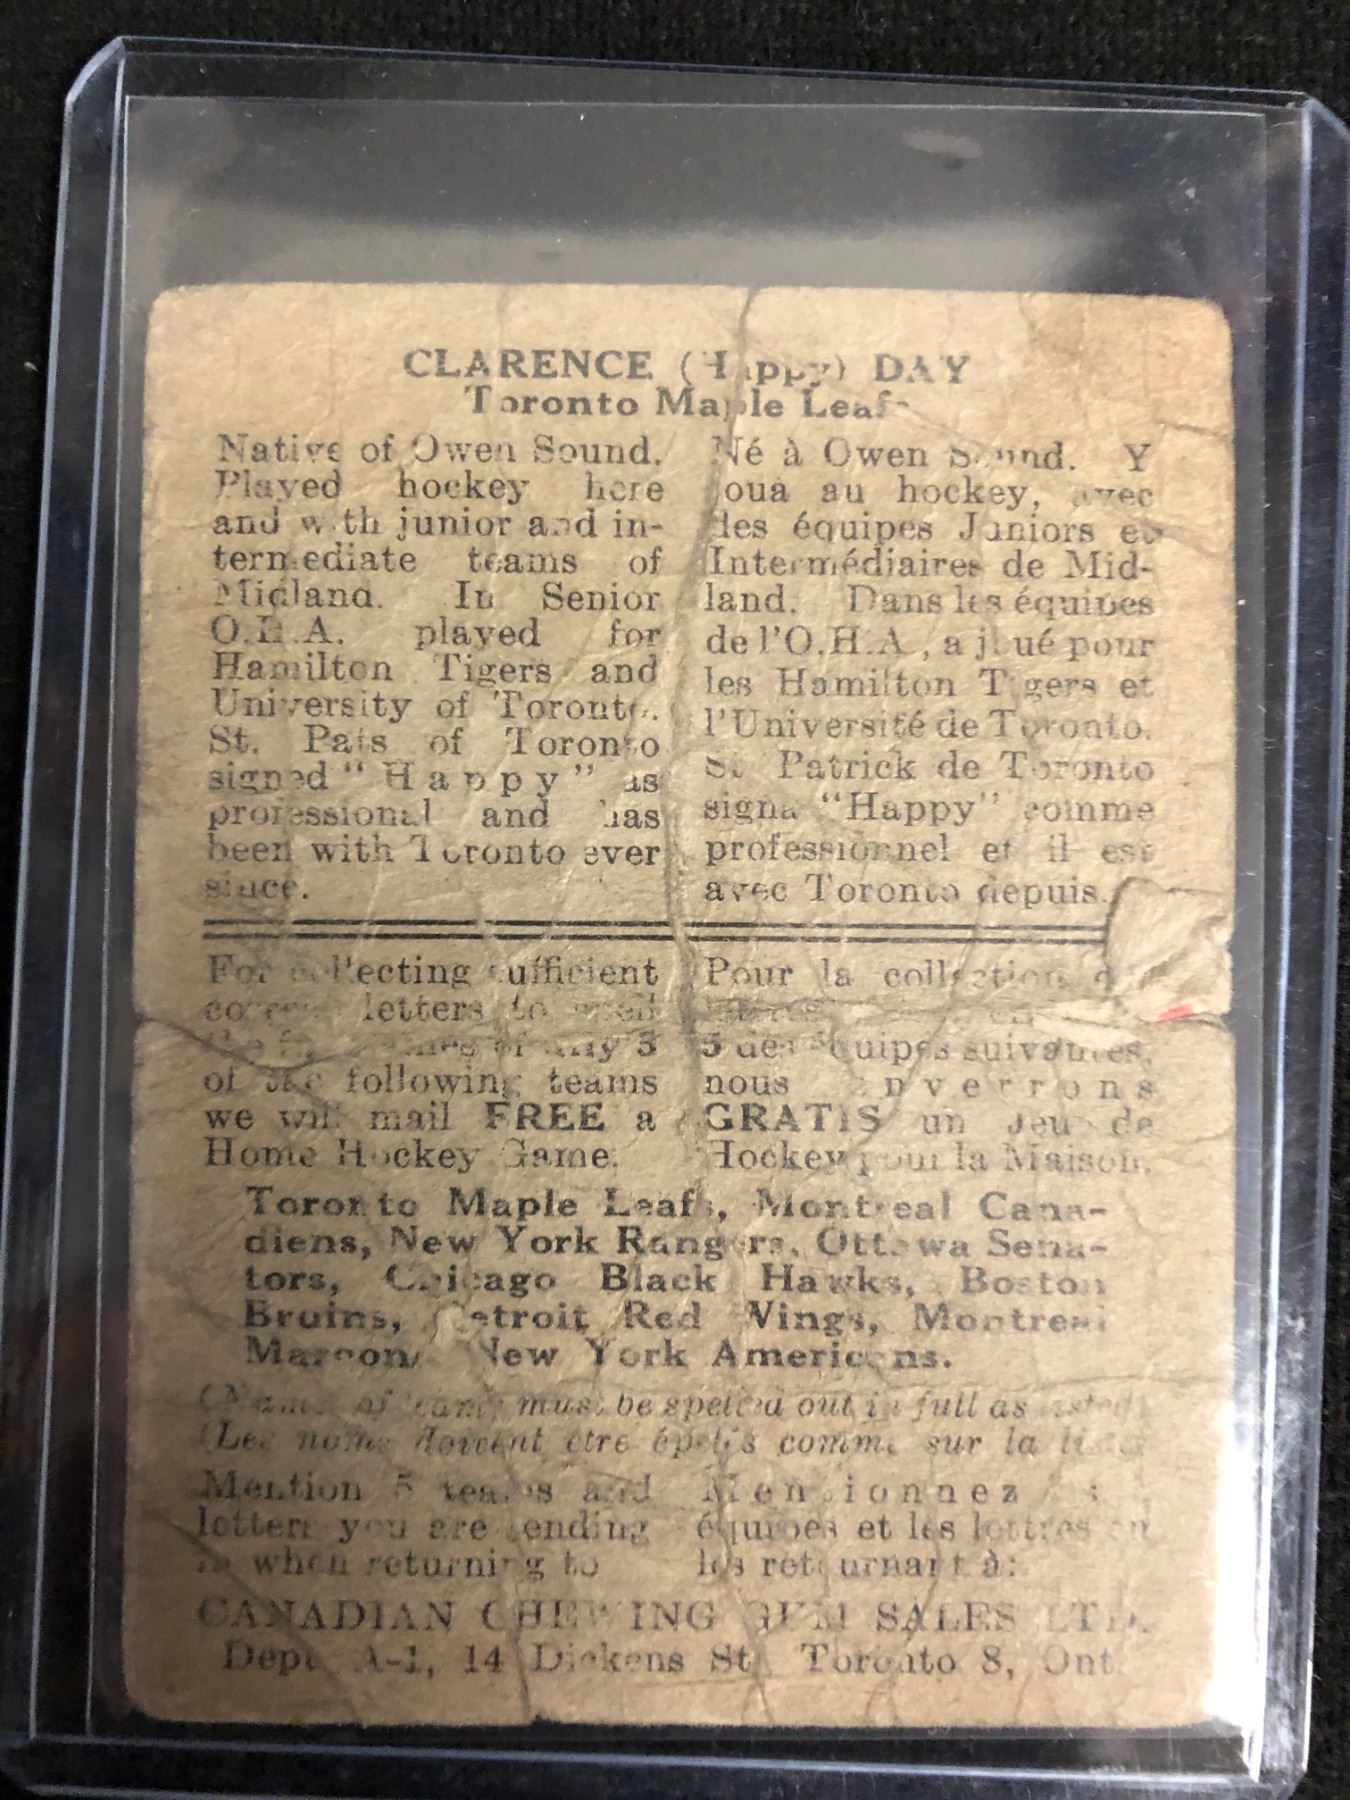 CLARENCE (Happy) DAY
Toronto Maple Leafs
Native of Owen Sound.
Played hockey here
and with junior and in-
termediate teams of
Midland. In Senior
O.H.A. played for
Hamilton Tigers and
University of Toronto.
St. Pats of Toronto
signed "Happy" as
professional and has
been with Toronto ever
since.
Né à Owen Sound. Y
joua au hockey, avec
les équipes Juniors et
Intermédiaires de Mid-
land. Dans les équipes
de l'O.H.A., a joué pour
les Hamilton Tigers et
l'Université de Toronto.
St. Patrick de Toronto
signa "Happy" comme
professionnel et il est
avec Toronto depuis.
For collecting sufficient
correct letters to spell
the names of any 5
of the following teams
we will mail FREE a
Home Hockey Game.
Pour la collection
5 des équipes suivantes,
nous enverrons
GRATIS un Jeu de
Hockey pour la Maison.
Toronto Maple Leafs, Montreal Cana-
diens, New York Rangers, Ottawa Sena-
tors, Chicago Black Hawks, Boston
Bruins, Detroit Red Wings, Montreal
Maroons, New York Americans.
(Names of teams must be spelled out in full as listed)
(Les noms doivent être épelés comme sur la liste)
Mention 5 teams and
letters you are sending
in when returning to
Mentionnez
équipes et les lettres en
les retournant à:
CANADIAN CHEWING GUM SALES LTD.
Dept. A-1, 14 Dickens St. Toronto 8, Ont.